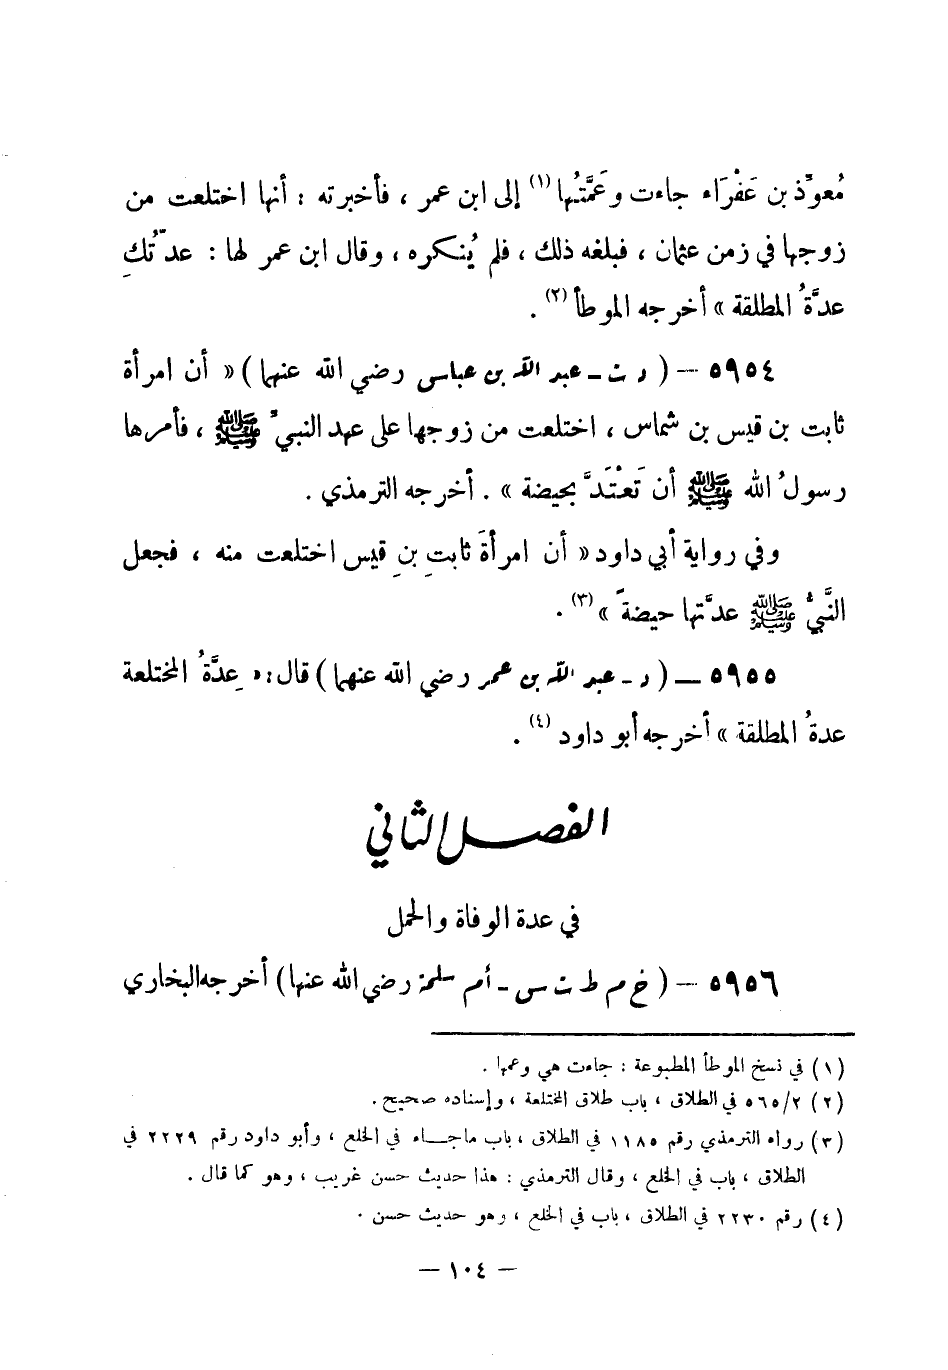 مُعوِّذ بن عَفْرَاء جاءت وعَمَّتُها (١) إلى ابن عمر ، فأخبرته : أنها اختلعت من
زوجها في زمن عثمان ، فبلغه ذلك ، فلم يُنكره ، وقال ابن عمر لها : عدَّتُكِ
عدَّةُ المطلقة » أخرجه الموطأ (٢) .
٥٩٥٤ – ( د ت ـ عبد اللّه بن عباس رضي الله عنهما ) « أن امرأة
ثابت بن قيس بن شماس ، اختلعت من زوجها على عهد النبيِّ ﷺ ، فأمرها
رسولُ الله ﷺ أن تَعْتَدَّ بحيضة » . أخرجه الترمذي .
وفي رواية أبي داود « أن امرأةَ ثابتِ بنِ قيس اختلعت منه ، فجعل
النَّبيُّ ﷺ عدَّتها حيضةً » (٣) .
٥٩٥٥ – ( د ـ عبد اللّه بن عمر رضي الله عنهما ) قال : « عِدَّةُ المختلعة
عدةُ المطلقة » أخرجه أبو داود (٤) .
الفصل الثاني
في عدة الوفاة والحمل
٥٩٥٦ – ( خ م ط ت س ـ أم سلمة رضي الله عنها ) أخرجه البخاري
(١) في نسخ الموطأ المطبوعة : جاءت هي وعمها .
(٢) ٥٦٥/٢ في الطلاق ، باب طلاق المختلعة ، وإسناده صحيح .
(٣) رواه الترمذي رقم ١١٨٥ في الطلاق ، باب ماجاء في الخلع ، وأبو داود رقم ٢٢٢٩ في
الطلاق ، باب في الخلع ، وقال الترمذي : هذا حديث حسن غريب ، وهو كما قال .
(٤) رقم ٢٢٣٠ في الطلاق ، باب في الخلع ، وهو حديث حسن .
– ١٠٤ –